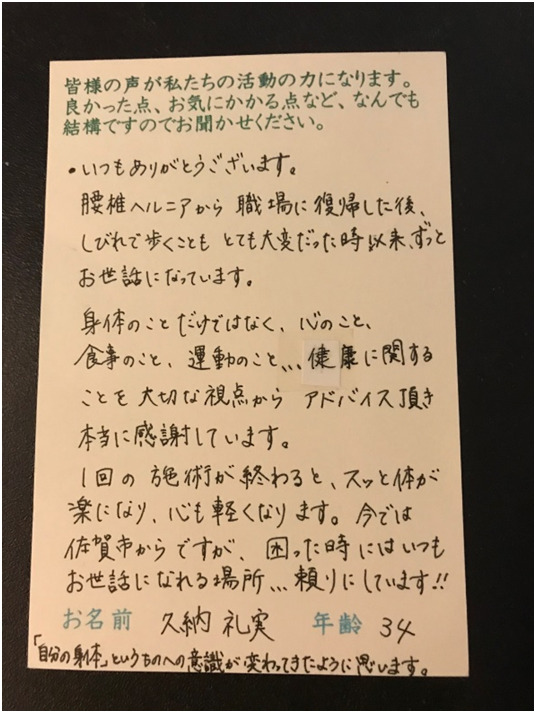 皆様の声が私たちの活動の力になります。
良かった点、お気にかかる点など、なんでも
結構ですのでお聞かせください。
・いつもありがとうございます。
腰椎ヘルニアから 職場に復帰した後、
しびれで歩くことも とても大変だった時以来、ずっと
お世話になっています。
身体のことだけではなく、心のこと、
食事のこと、運動のこと、、、健康に関する
ことを大切な視点から アドバイス頂き
本当に感謝しています。
1回の 施術が終わると、スッと体が
楽になり、心も軽くなります。今では
佐賀市からですが、困った時にはいつも
お世話になれる場所、、、頼りにしています!!
お名前 久納 礼実 年齢 34
「自分の身体」というものへの意識が変わってきたように思います。